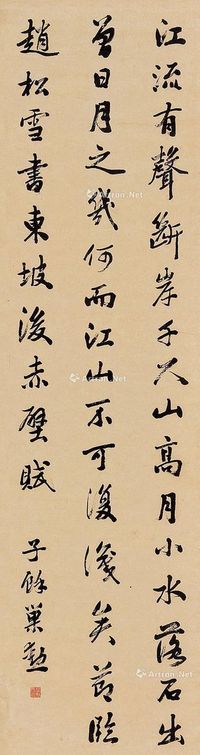 江流有聲斷岸千尺山高月小水落石出
曾日月之幾何而江山不可復識矣節臨
趙松雪書東坡後赤壁賦 子餘巢勳
Artron.Net
Artron.Net
Artron.Net